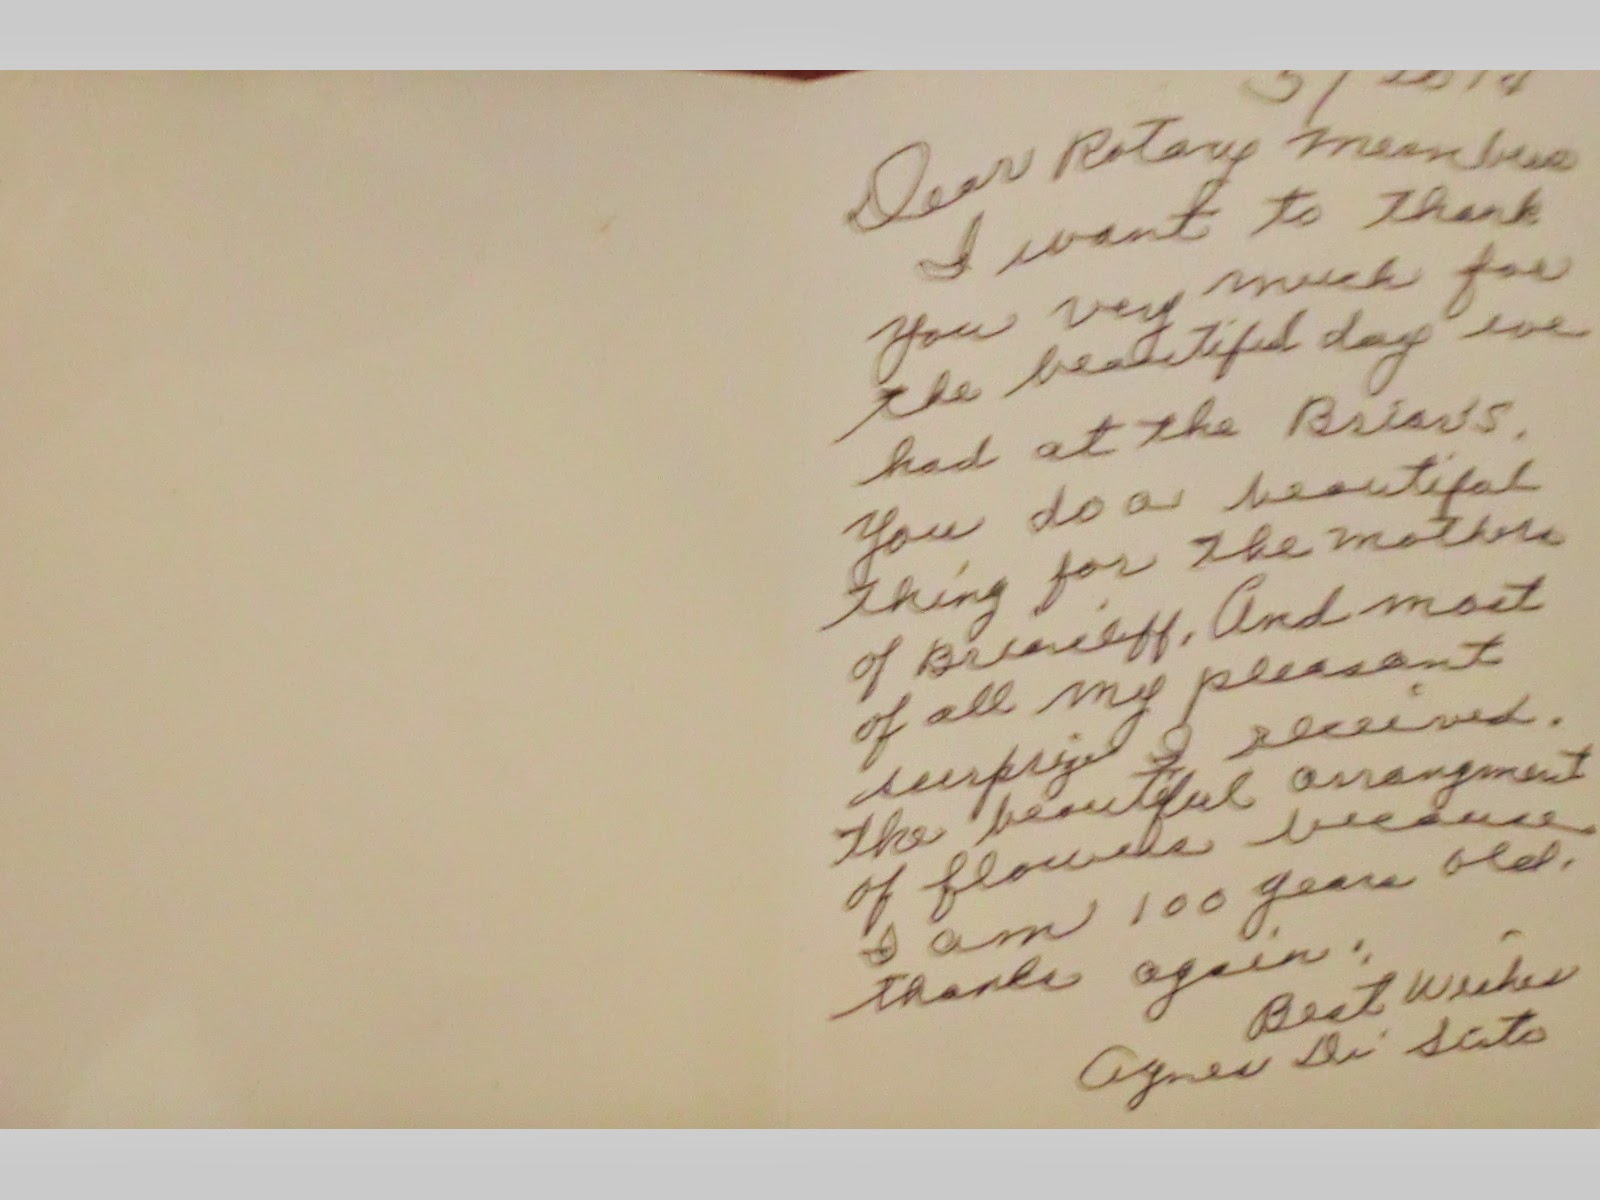 Dear Rotary members
I want to thank
you very much for
the beautiful day we
had at the Briar's.
You do a beautiful
thing for the mothers
of Briarcliff. And most
of all my pleasant
surprize I received.
The beautiful arrangment
of flowers because
I am 100 years old.
thanks again.
Best Wishes
Agnes Di